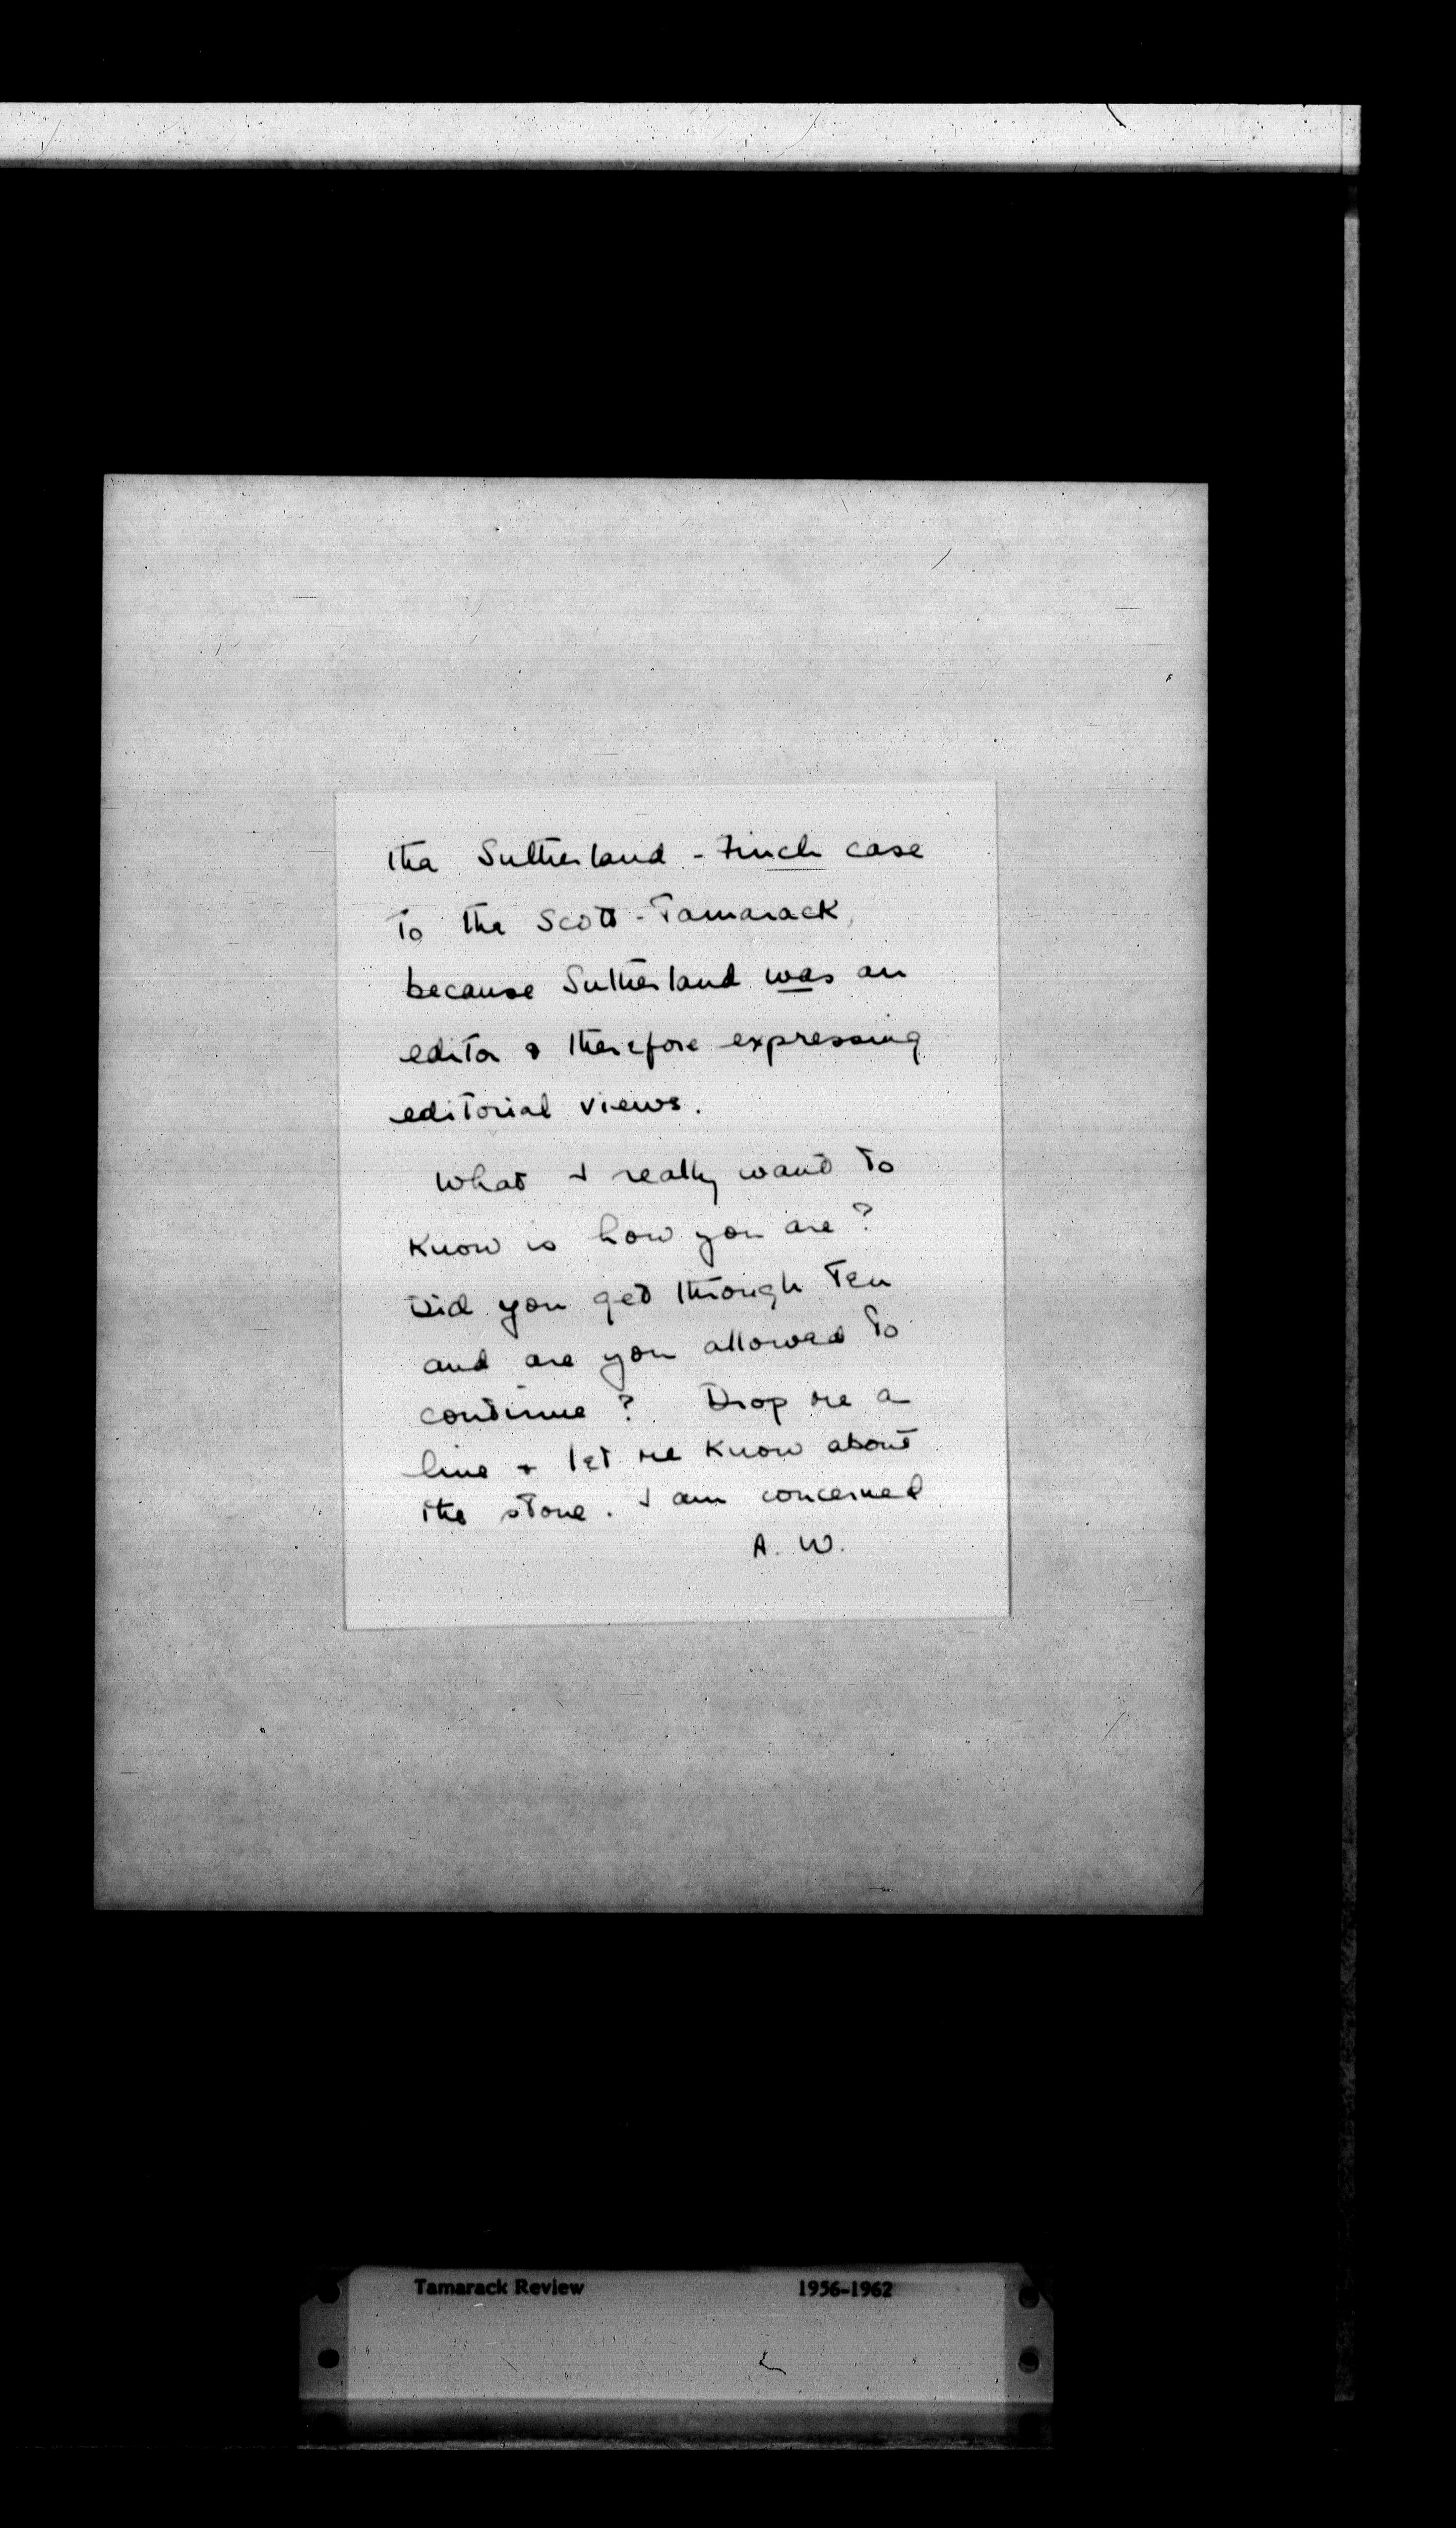 the Sutherland - Finch case
to the Scott - Tamarack,
because Sutherland was an
editor & therefore expressing
editorial views.
What I really want to
know is how you are?
Did you get through Ten
and are you allowed to
continue? Drop me a
line + let me know about
the stone. I am concerned
A. W.
Tamarack Review 1956-1962